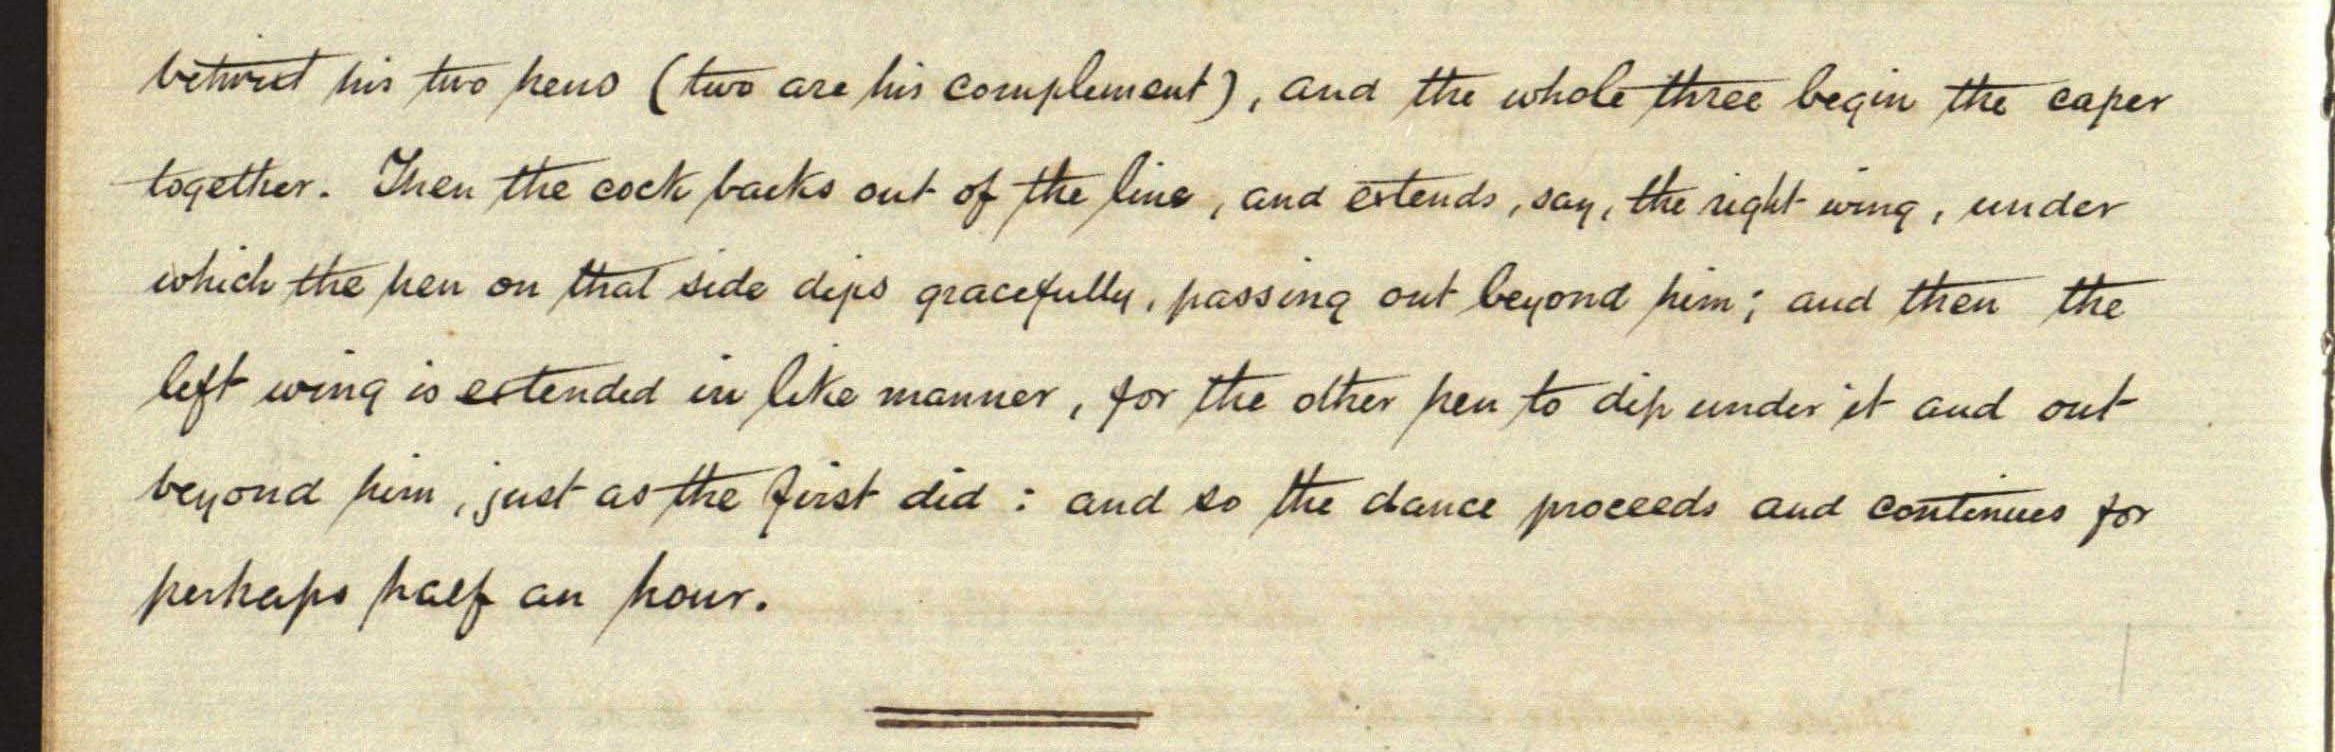 betwixt his two hens (two are his complement), and the whole three begin the caper
together. Then the cock backs out of the line, and extends, say, the right wing, under
which the hen on that side dips gracefully, passing out beyond him; and then the
left wing is extended in like manner, for the other hen to dip under it and out
beyond him, just as the first did: and so the dance proceeds and continues for
perhaps half an hour.